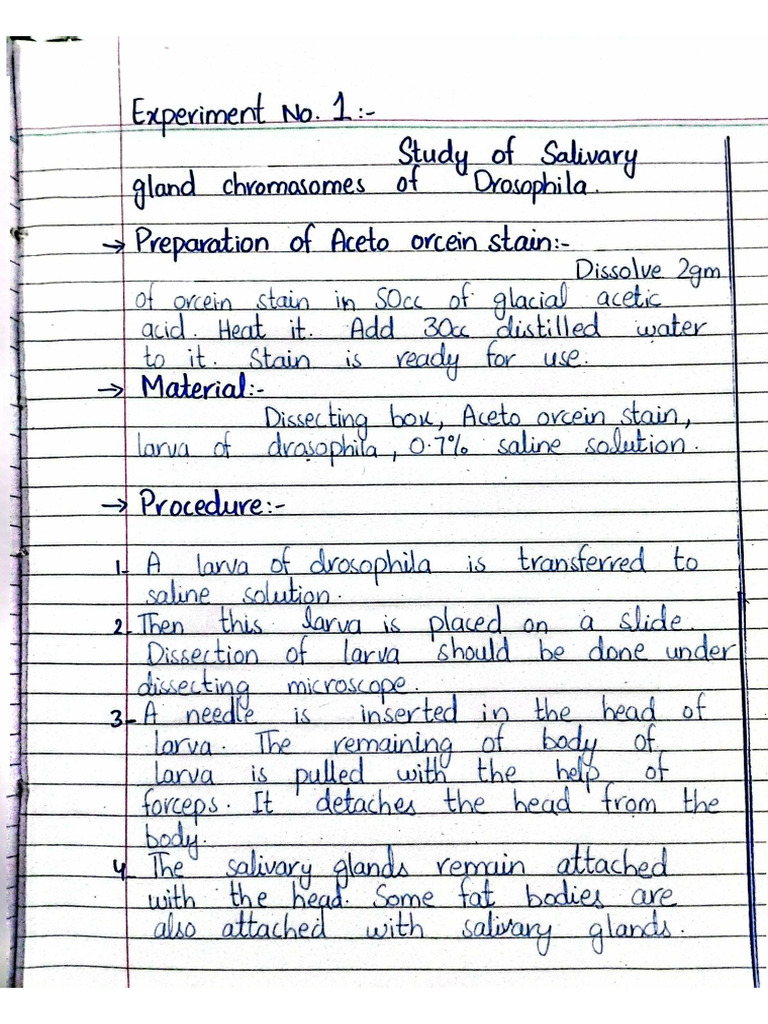 Experiment No. 1:-
Study of Salivary
gland chromasomes of Drosophila.
→ Preparation of Aceto orcein stain:-
Dissolve 2gm
of orcein stain in 50cc of glacial acetic
acid. Heat it. Add 30cc distilled water
to it. Stain is ready for use.
→ Material:-
Dissecting box, Aceto orcein stain,
larva of drosophila, 0.7% saline solution.
→ Procedure:-
1- A larva of drosophila is transferred to
saline solution.
2- Then this larva is placed on a slide.
Dissection of larva should be done under
dissecting microscope.
3- A needle is inserted in the head of
larva. The remaining of body of
larva is pulled with the help of
forceps. It detaches the head from the
body.
4- The salivary glands remain attached
with the head. Some fat bodies are
also attached with salivary glands.